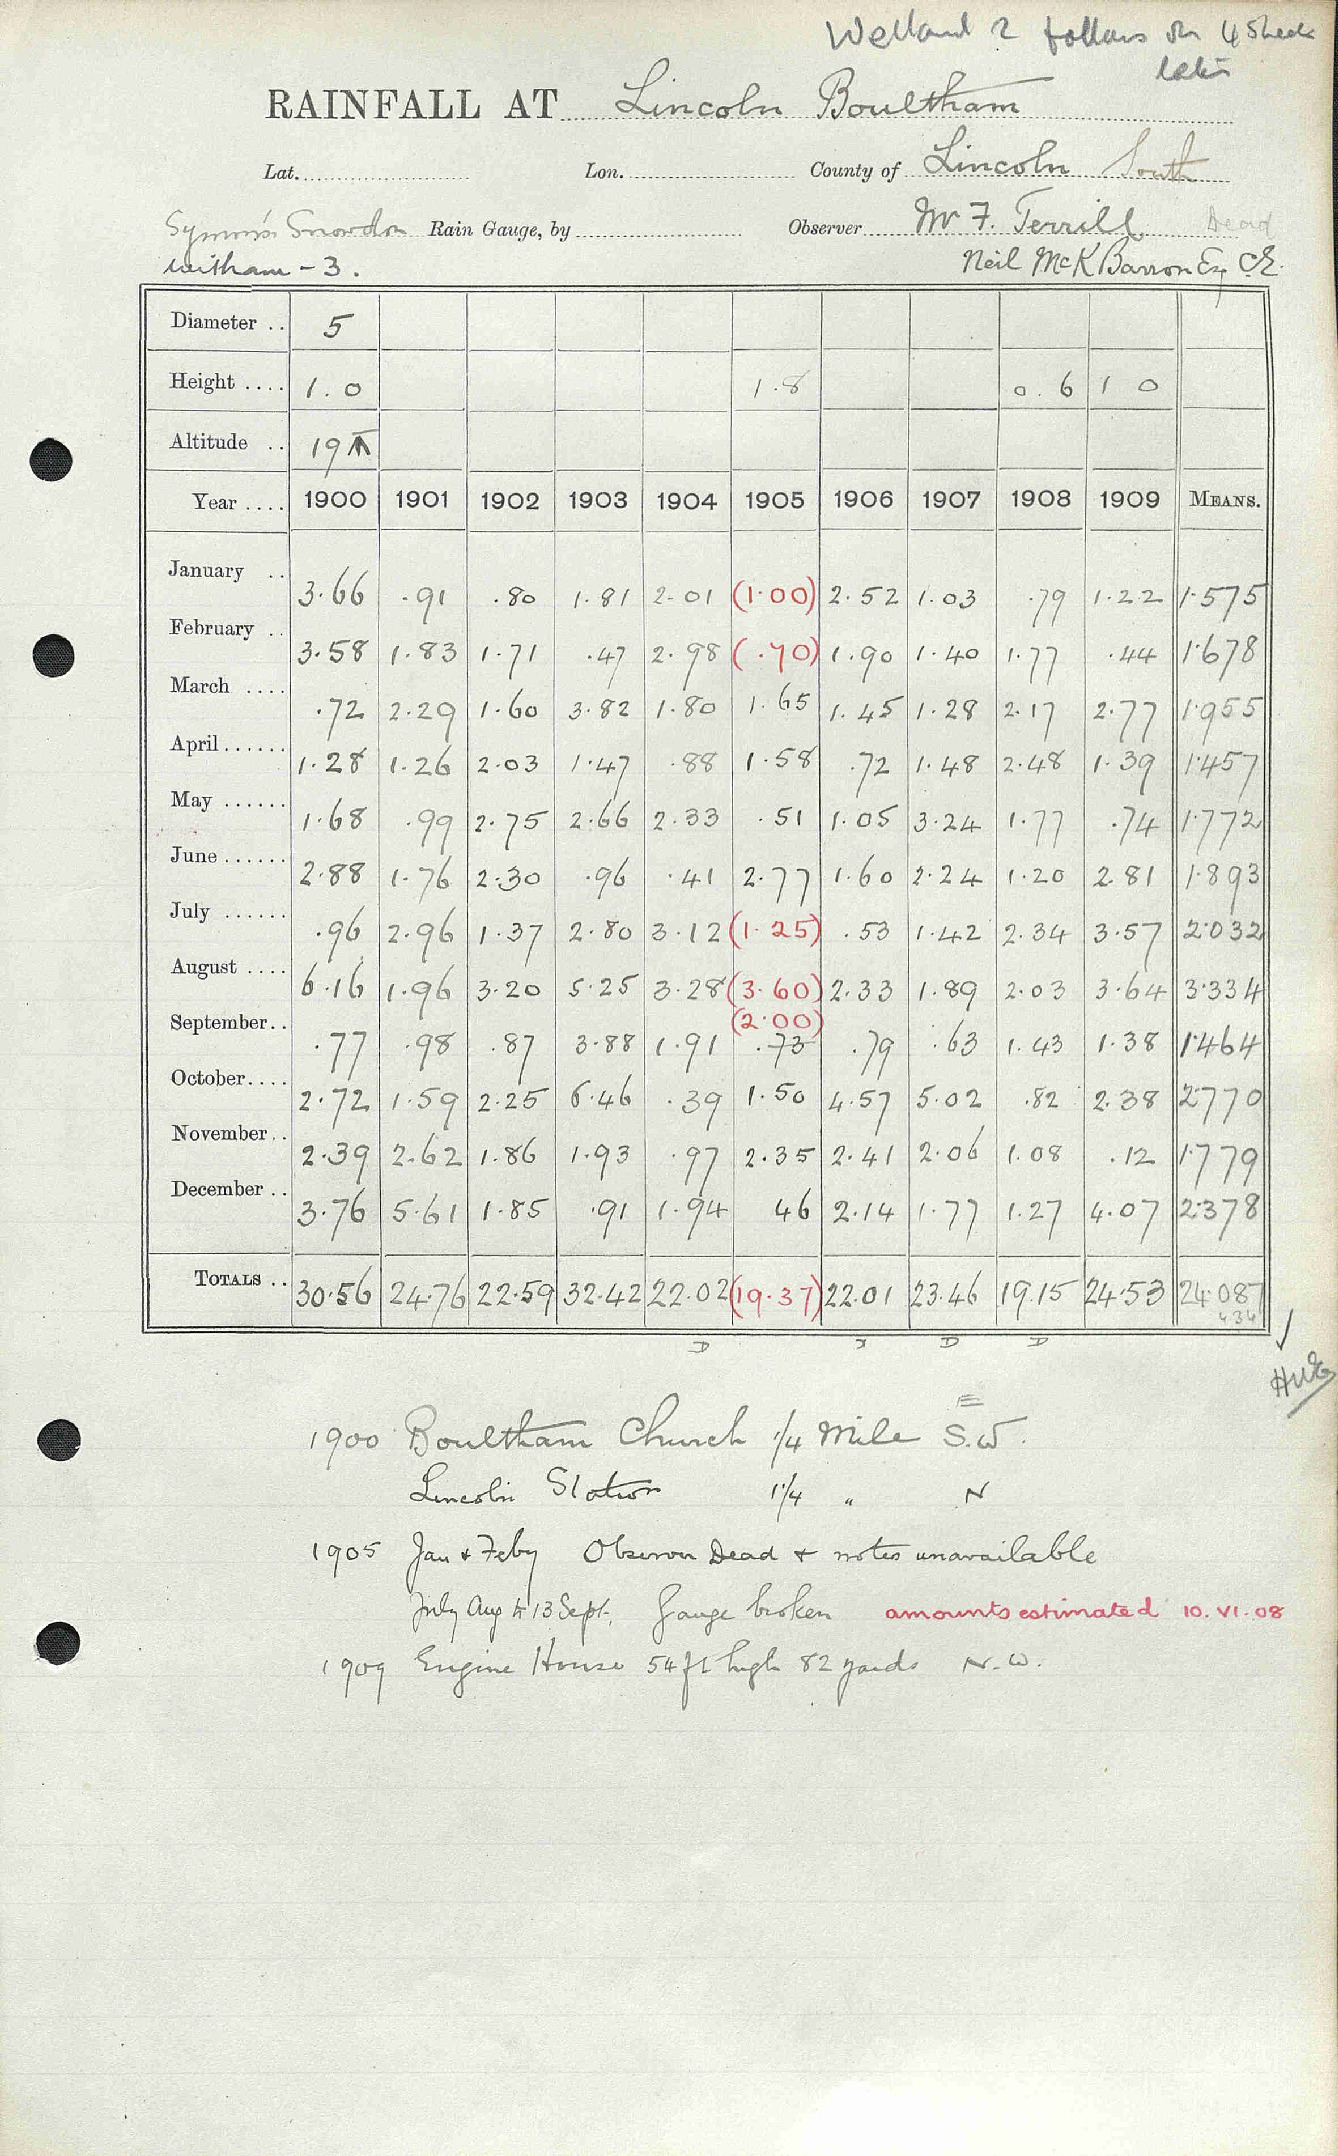 Welland 2 follows on 4 Sheets
later
RAINFALL AT Lincoln Boultham
Lat. Lon. County of Lincoln South
Symons's Snowdon Rain Gauge, by Observer Mr F. Terrill Dead
Witham - 3. Neil McK Barron Esq C.E.
Diameter .. 5
Height .... 1.0 1.8 0.6 1 0
Altitude .. 19
Year .... 1900 1901 1902 1903 1904 1905 1906 1907 1908 1909 MEANS.
January .. 3.66 .91 .80 1.81 2.01 (1.00) 2.52 1.03 .79 1.22 1.575
February .. 3.58 1.83 1.71 .47 2.98 (.70) 1.90 1.40 1.77 .44 1.678
March .... .72 2.29 1.60 3.82 1.80 1.65 1.45 1.28 2.17 2.77 1.955
April ...... 1.28 1.26 2.03 1.47 .88 1.58 .72 1.48 2.48 1.39 1.457
May ...... 1.68 .99 2.75 2.66 2.33 .51 1.05 3.24 1.77 .74 1.772
June ...... 2.88 1.76 2.30 .96 .41 2.77 1.60 2.24 1.20 2.81 1.893
July ...... .96 2.96 1.37 2.80 3.12 (1.25) .53 1.42 2.34 3.57 2.032
August .... 6.16 1.96 3.20 5.25 3.28 (3.60) 2.33 1.89 2.03 3.64 3.334
(2.00)
September.. .77 .98 .87 3.88 1.91 .73 .79 .63 1.43 1.38 1.464
October.... 2.72 1.59 2.25 6.46 .39 1.50 4.57 5.02 .82 2.38 2.770
November.. 2.39 2.62 1.86 1.93 .97 2.35 2.41 2.06 1.08 .12 1.779
December .. 3.76 5.61 1.85 .91 1.94 46 2.14 1.77 1.27 4.07 2.378
TOTALS .. 30.56 24.76 22.59 32.42 22.02 (19.37) 22.01 23.46 19.15 24.53 24.087
D D D
E
1900 Boultham Church 1/4 Mile S.W.
Lincoln Station 1 1/4 " N
1905 Jan & Feby Observer Dead & notes unavailable
July Aug to 13 Sept. Gauge broken amounts estimated 10.VI.08
1909 Engine House 54 ft high 82 yards N.W.